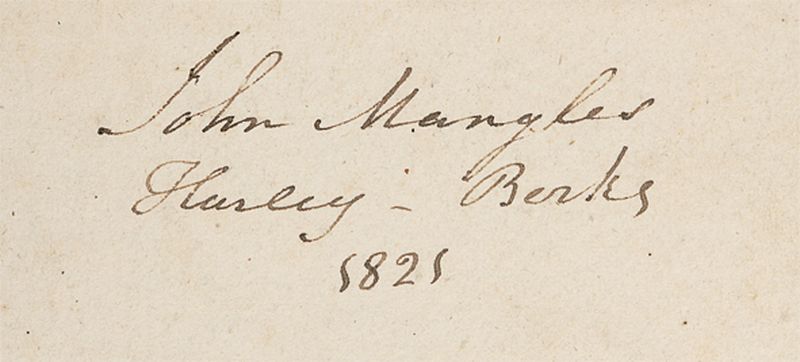 John Mangles
Hurley - Berks
1821